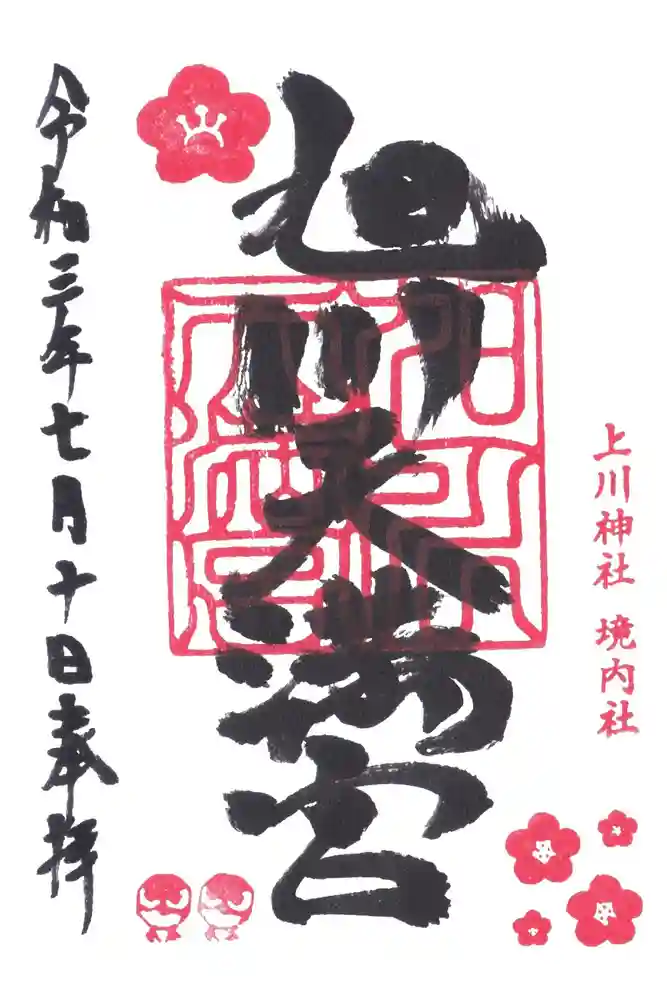 上川神社 境内社
旭川天満宮
令和三年七月十日奉拝